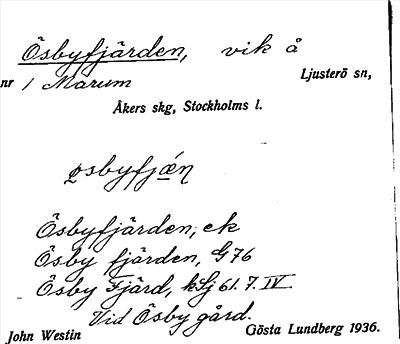 Ösbyfjärden, vik å
nr 1 Marum Ljusterö sn,
Åkers skg, Stockholms l.
øsbyfjǽn
Ösbyfjärden, ek
Ösby fjärden, G76
Ösby Fjärd, kSj 61. 7. IV
Vid Ösby gård.
John Westin Gösta Lundberg 1936.